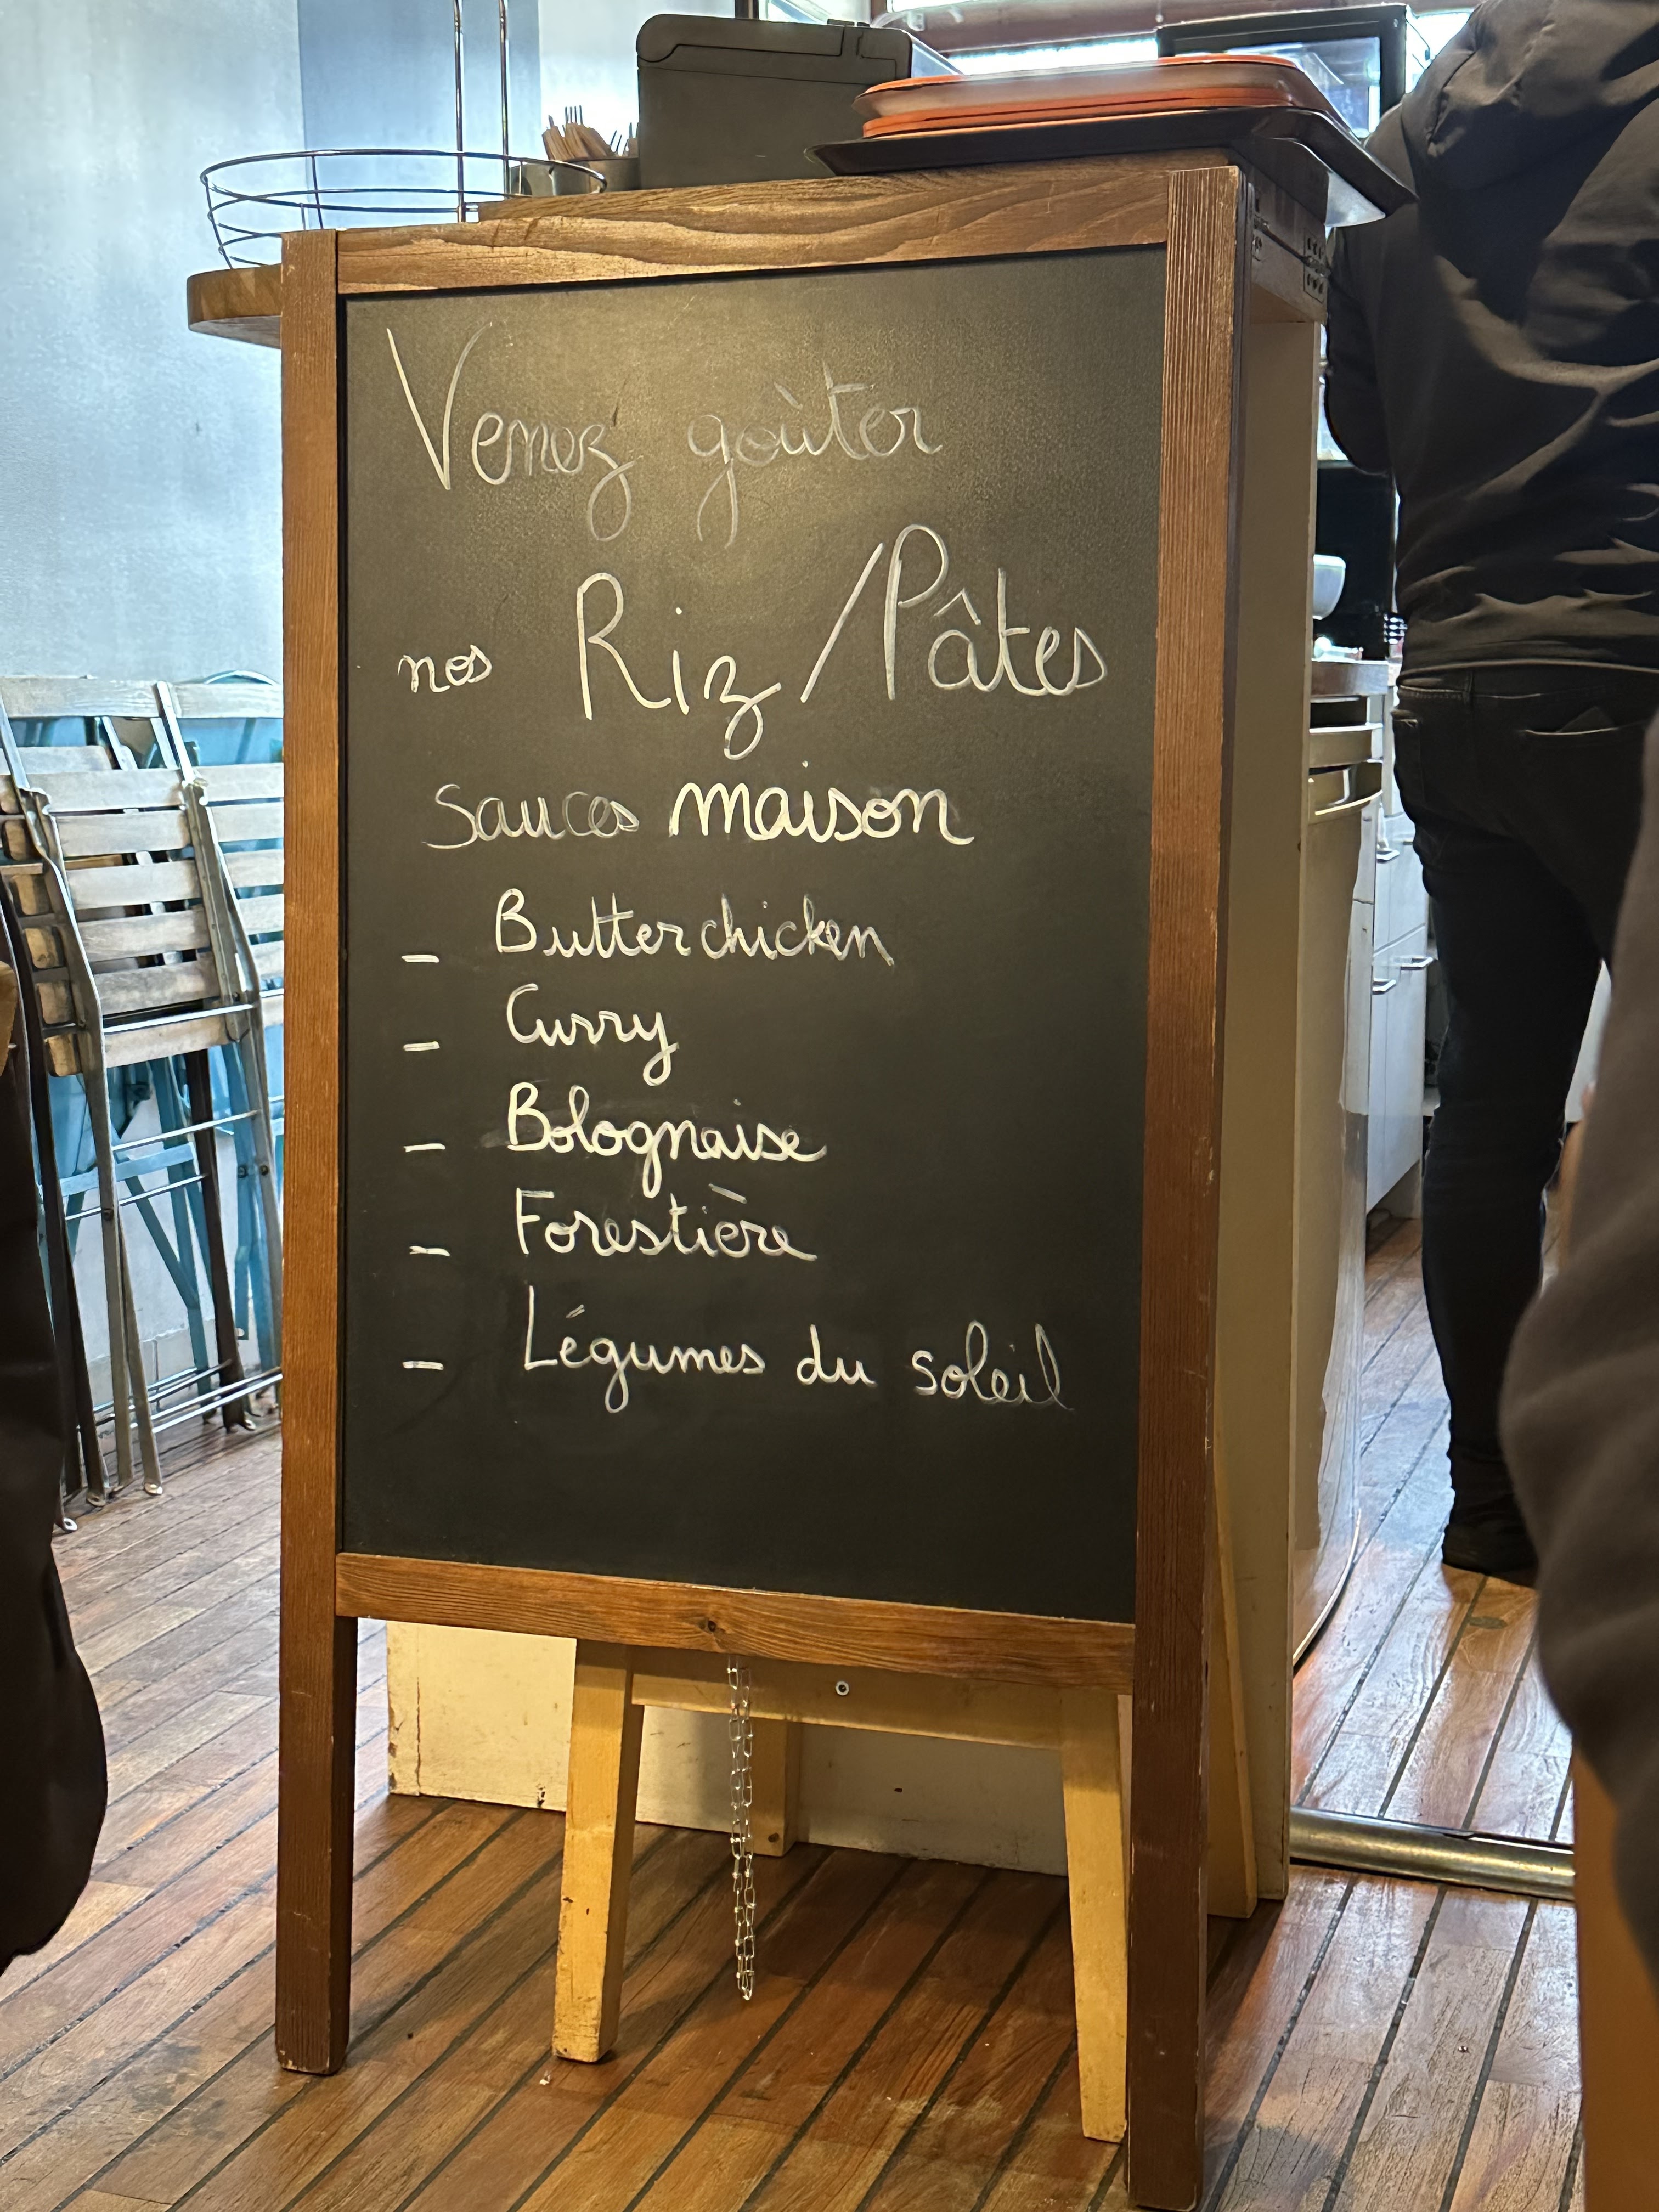 Venez goùter
nos Riz / Pâtes
Sauces maison
_ Butter chicken
_ Curry
_ Bolognaise
_ Forestière
_ Légumes du soleil